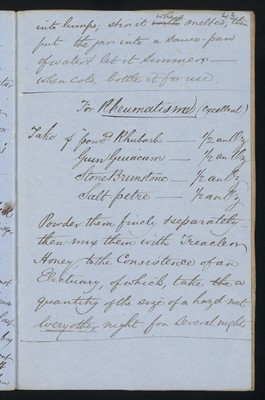 into lumps; stir it when melted, then
put the jar into a sauce-pan
of water & let it simmer —
when cold, bottle it for use.
For Rheumatism (excellent)
Take of pow.d Rhubarb — ½ an Oz
Gum Guacum — ½ an Oz
Stone Brimstone — ½ an Oz
Salt petre — ½ an Oz
Powder them finely & separately —
then mix them with Treacle or
Honey, to the Consistence of an
Electuary, of which, take a
quantity of the size of a hazel nut
every other night for several nights